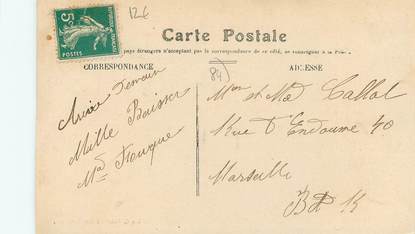 12€
Carte Postale
pays étrangers n'acceptant pas la correspondance de ce côté, se renseigner à la Poste
CORRESPONDANCE
ADRESSE
84
5c
Arrive Demain
Mille Baisers
Md Fouque
Mr et Md Callol
Rue d'Endoume 40
Marseille
B d R